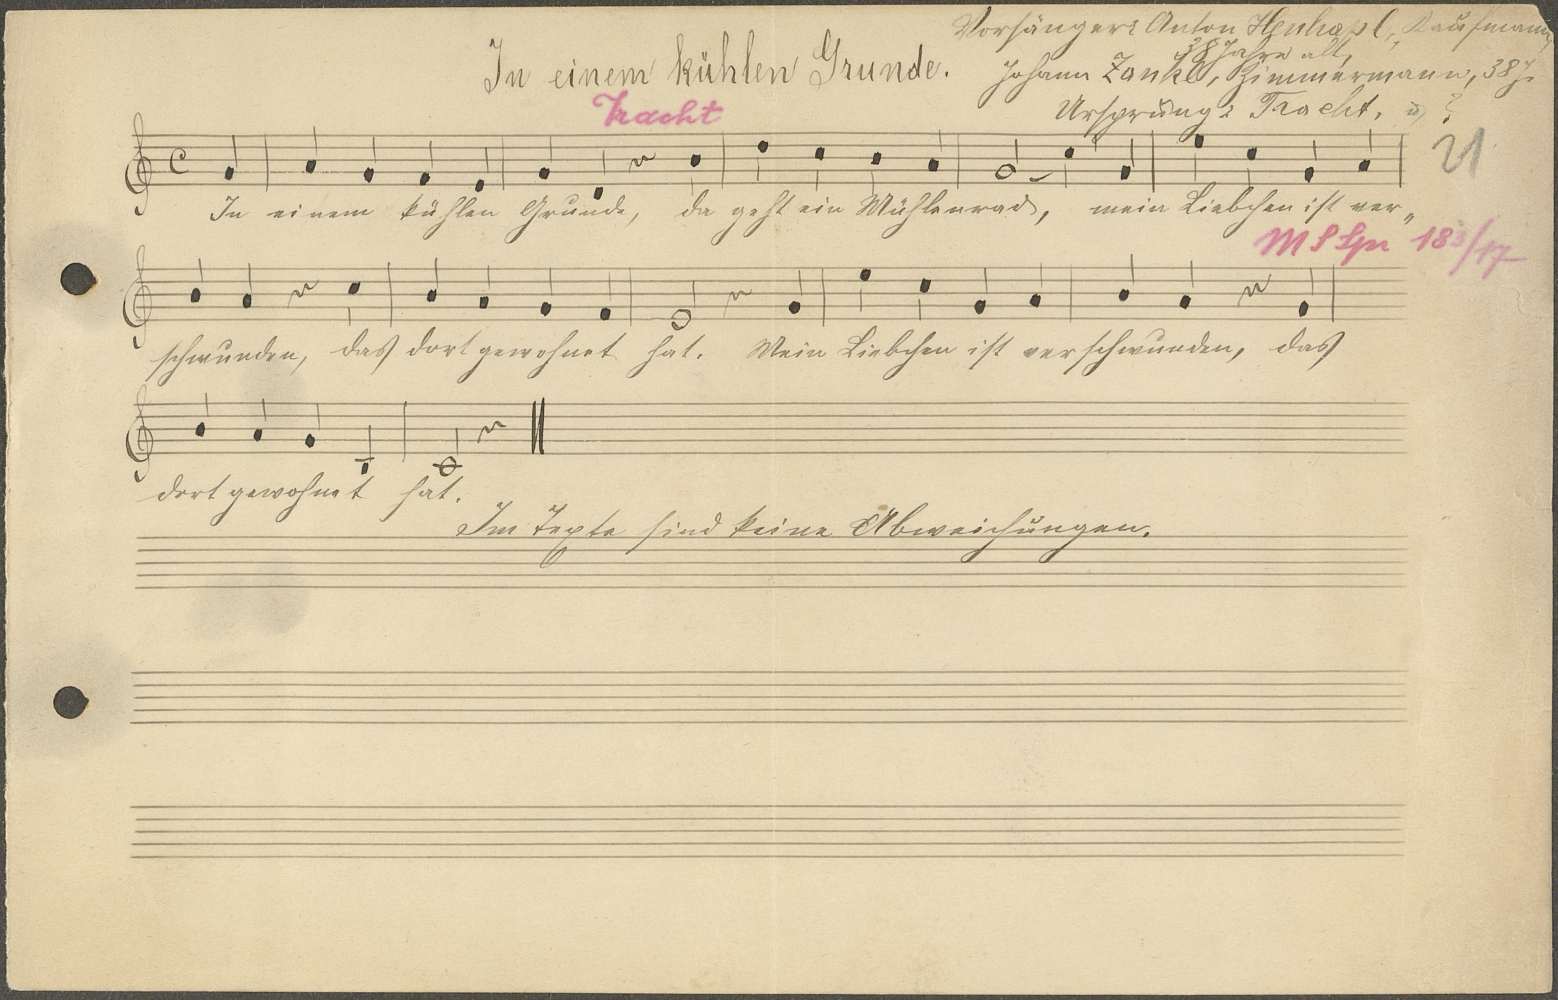 Vorsänger: Anton Henhapl, Kaufmann,
38 Jahre alt,
In einem kühlen Grunde.
Johann Zankl, Zimmermann, 38 J.
Tracht
Ursprung: Tracht. ?
21
C
In einem kühlen Grunde, da geht ein Mühlenrad, mein Liebchen ist ver„
183/17
schwunden, das dort gewohnet hat. Mein Liebchen ist verschwunden, das
dort gewohnet hat.
Im Texte sind keine Abweichungen.